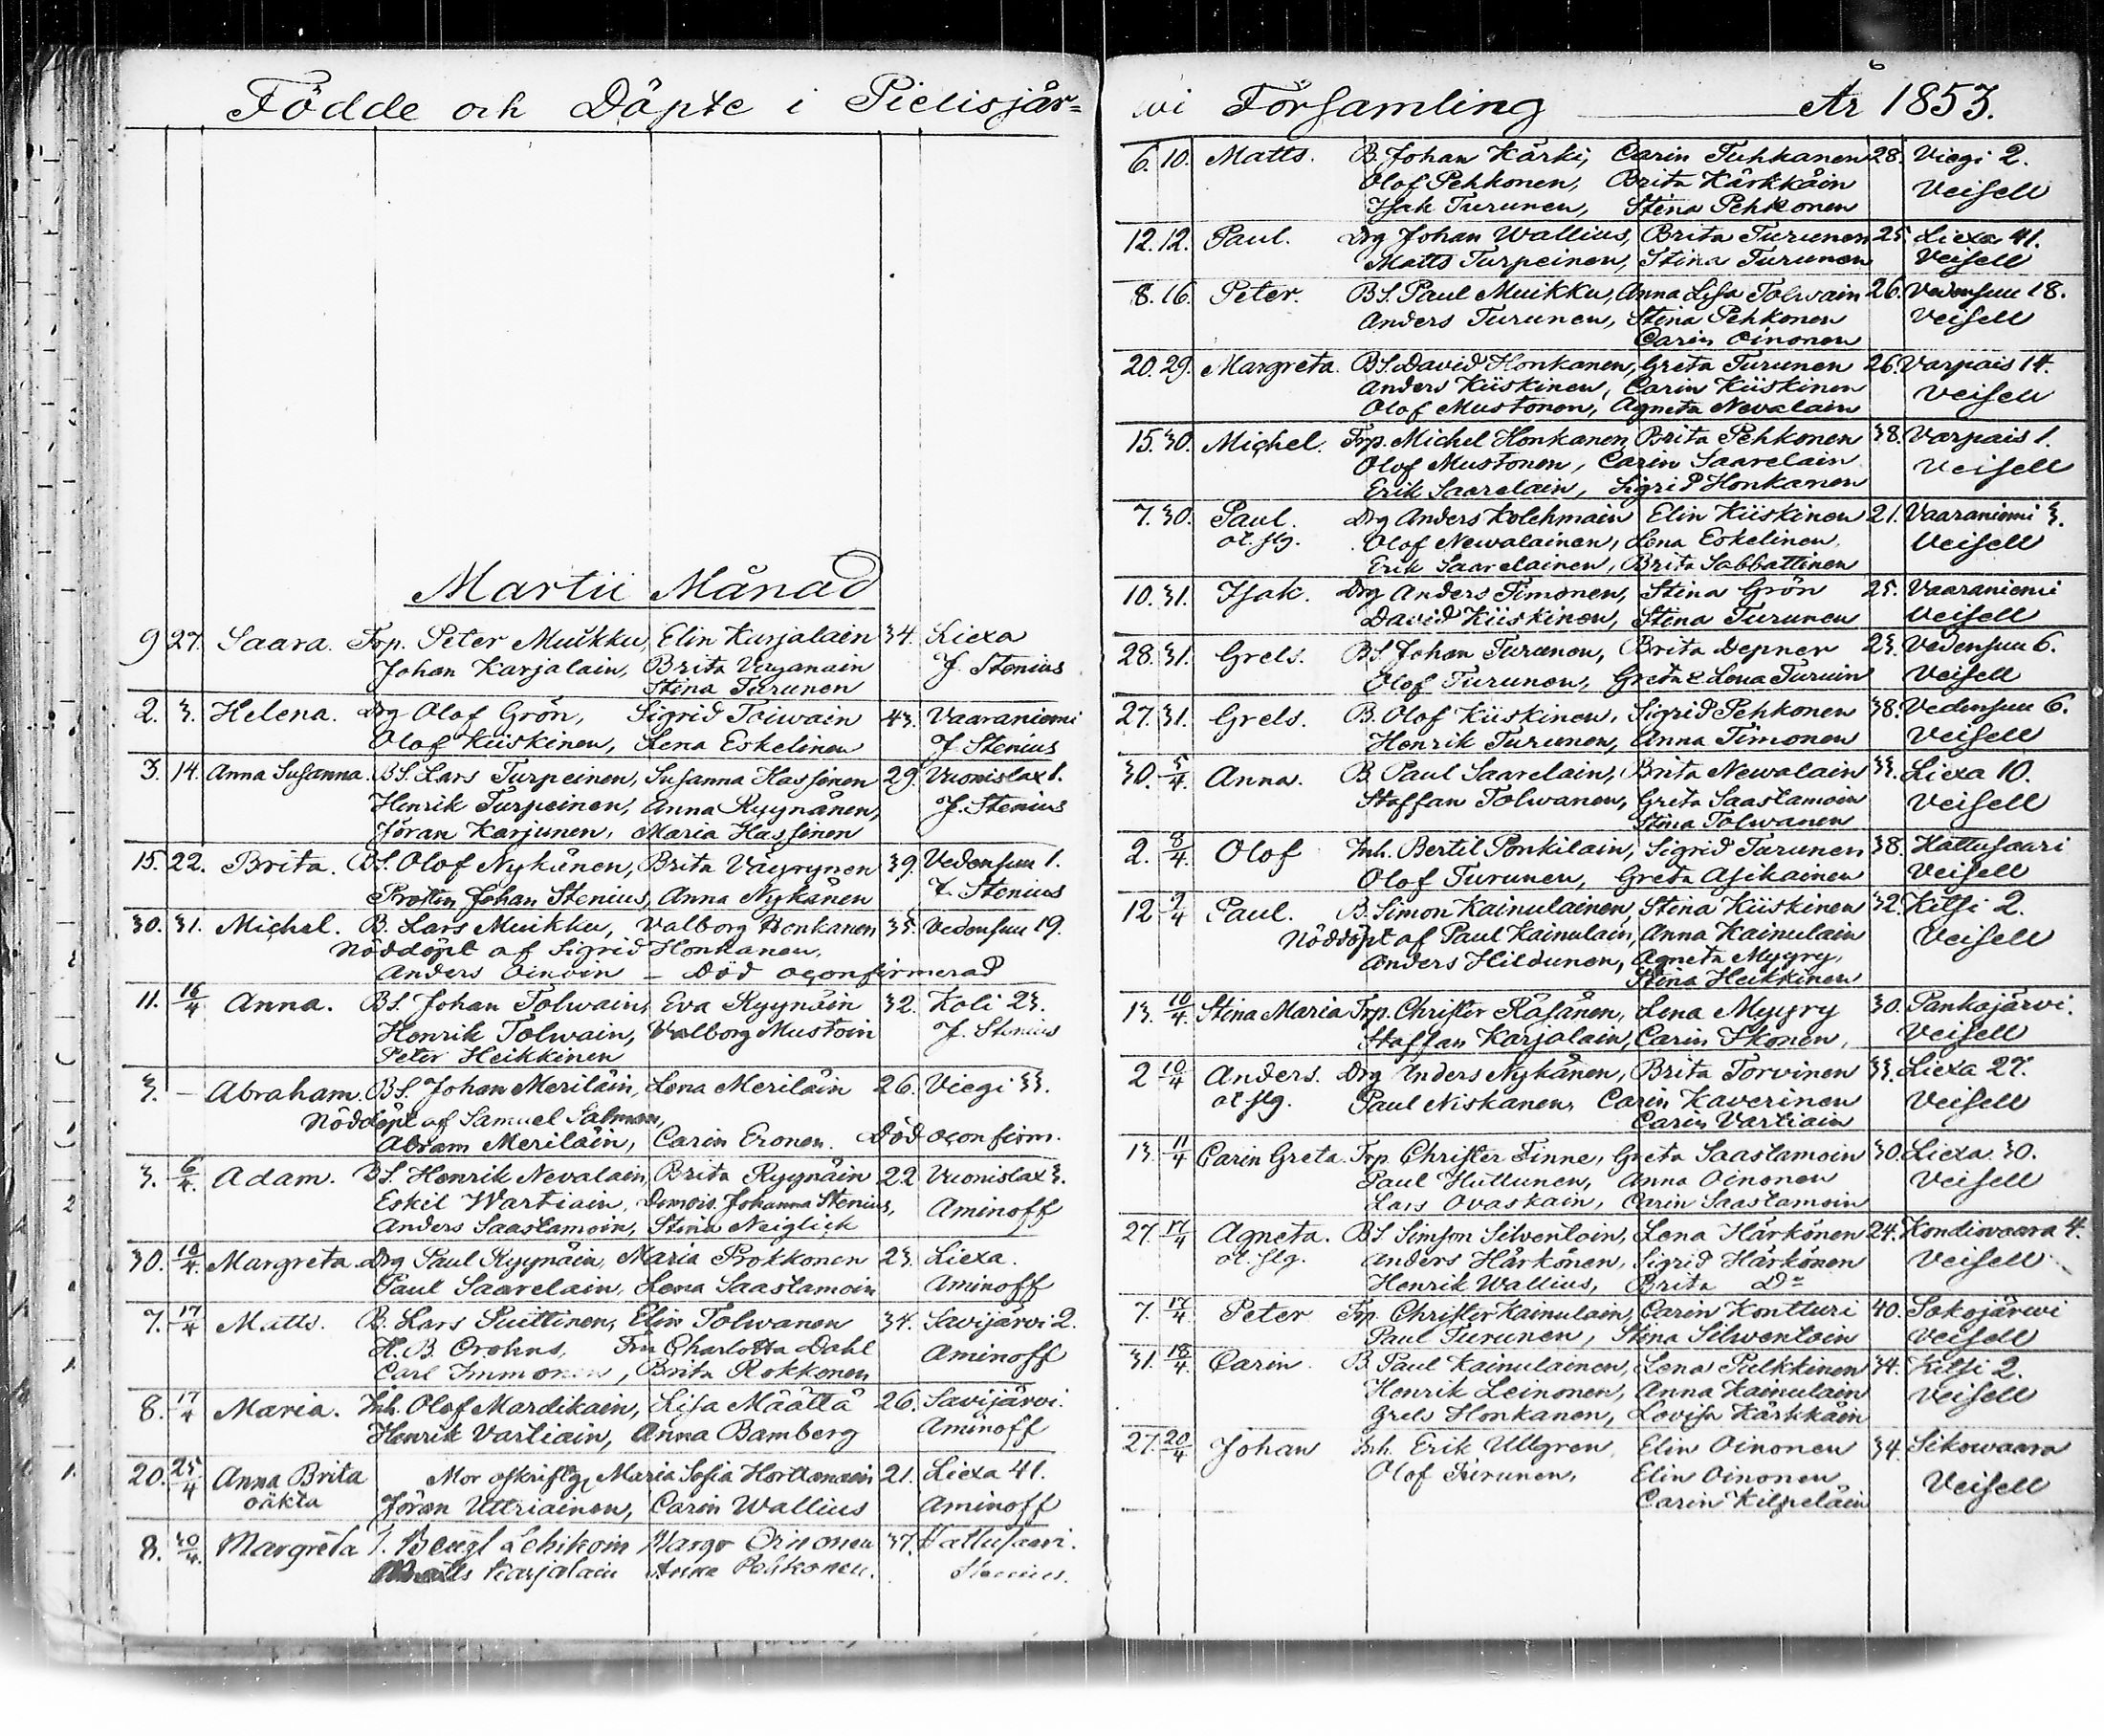 Födde och Döpte i Pielisjär=
Martii Månad
9 27. Saara. Trp. Peter Muikku, Elin Karjalain 34. Liexa
Johan Karjalain, Brita Väyänäin J. Stenius
Stina Turunen
2. 3. Helena. Drg Olof Grön, Sigrid Toiwain 43. Vaaraniemi
Olof Kiiskinen, Lena Eskelinen J. Stenius
3. 14. Anna Susanna. BS. Lars Turpeinen, Susanna Hassinen 29. Vuonislax 1.
Henrik Turpeinen, Anna Ryynänen, J. Stenius
Jöran Karjunen, Maria Hassinen
15. 22. Brita. BS. Olof Nykänen, Brita Väyrynen 39. Vedensuu 1.
Prosten Johan Stenius, Anna Nykänen J. Stenius
30. 31. Michel. B. Lars Muikku, Valborg Honkanen 35. Vedensuu 19.
Nöddöpt af Sigrid Honkanen,
Anders Oinoin – Död oconfirmerad
11. 16/4 Anna. BS. Johan Tolwain, Eva Ryynäin 32. Koli 23.
Henrik Tolwain, Valborg Mustoin J. Stenius
Peter Heikkinen
3. – Abraham. BS. Johan Meriläin, Lena Meriläin 26. Viegi 33.
Nöddöpt af Samuel Salmen,
Abram Meriläin, Carin Eronen. Död oconfirm.
3. 6/4. Adam. BS. Henrik Nevalain, Brita Ryynäin 22 Vuonislax 3.
Eskil Wartiain, Demois. Johanna Stenius, Aminoff
Anders Saastamoin, Stina Neiglick
30. 10/4. Margreta. Drg Paul Ryynäin, Maria Prokkonen 23. Liexa.
Paul Saarelain, Lena Saastamoin Aminoff
7. 17/4 Matts. B. Lars Puittinen, Elin Tolwanen 34. Savijärvi 2.
H. B. Crohns, Fru Charlotta Dahl Aminoff
Carl Immonen, Brita Rokkonen
8. 17/4 Maria. Inh. Olof Mardikain, Lisa Määttä 26. Savijärvi.
Henrik Vartiain, Anna Bamberg Aminoff
20. 25/4 Anna Brita Mor afskriftg. Maria Sofia Horttanain 21. Liexa 41.
oäkta Jöran Uttriainen, Carin Wallius Aminoff
8. 30/4. Margreta I. Bengt Lehikoin Margr Oinonen 37. Hattusaari.
Matts Karjalain Anna Pehkonen. Stenius.
wi Församling År 1853.
6
6. 10. Matts. B. Johan Kärki, Carin Tuhkanen 28. Viegi 2.
Olof Pehkonen, Brita Kärkkäin Veisell
Isak Turunen, Stina Pehkonen
12. 12. Paul. Drg Johan Wallius, Brita Turunen 25. Liexa 41.
Matts Turpeinen, Stina Turunen Veisell
8. 16. Peter. BS. Paul Muikku, Anna Lisa Tolwain 26. Vedensuu 18.
Anders Turunen, Stina Pehkonen Veisell
Carin Oinonen
20. 29. Margreta. BS. David Honkanen, Greta Turunen 26. Varpais 14.
Anders Kiiskinen, Carin Kiiskinen Veisell
Olof Mustonen, Agneta Nevalain
15. 30. Michel. Trp. Michel Honkanen Brita Pehkonen 38. Varpais 1.
Olof Mustonen, Carin Saarelain Veisell
Erik Saarelain, Sigrid Honkanen
7. 30. Paul. Drg Anders Kolehmain Elin Kiiskinen 21. Vaaraniemi 3.
ot. flg. Olof Newalainen, Lena Eskelinen Veisell
Erik Saarelainen, Brita Sabbattinen
10. 31. Isak. Drg Anders Timonen, Stina Grön 25. Vaaraniemi
David Kiiskinen, Stina Turunen Veisell
28. 31. Grels. BS. Johan Turunen, Brita Depner 23. Vedensuu 6.
Olof Turunen, Greta & Lena Turuin Veisell
27. 31. Grels. B. Olof Kiiskinen, Sigrid Pehkonen 38. Vedensuu 6.
Henrik Turunen, Anna Timonen Veisell
30. 5/4. Anna. B. Paul Saarelain, Brita Newalain 33. Liexa 10.
Staffan Tolwanen, Greta Saastamoin Veisell
Stina Tolwanen
2. 8/4. Olof Inh. Bertil Ponkilain, Sigrid Turunen 38. Hattusaari
Olof Turunen, Greta Asikainen Veisell
12 9/4 Paul. B. Simon Kainulainen, Stina Kiiskinen 32. Kitsi 2.
Nöddöpt af Paul Kainulain, Anna Kainulain Veisell
Anders Hildunen, Agneta Myyry,
Stina Heikkinen
13. 10/4. Stina Maria Trp. Christer Räsänen, Lena Myyry 30. Pankajärvi.
Staffan Karjalain, Carin Ikonen, Veisell
2 10/4 Anders. Drg Anders Nykänen, Brita Torvinen 33. Liexa 27.
ot. flg. Paul Niskanen, Carin Kaverinen Veisell
Carin Vartiain
13. 11/4 Carin Greta. Trp. Christer Finne, Greta Saastamoin 30. Liexa 30.
Paul Huttunen, Anna Oinonen Veisell
Lars Ovaskain, Carin Saastamoin
27. 17/4 Agneta. BS. Simson Silwentoin, Lena Härkönen 24. Kondiovaara 4.
ot. flg. Anders Härkönen, Sigrid Härkönen Veisell
Henrik Wallius, Brita Do
7. 17/4 Peter Trp. Christer Kainulain, Carin Kontturi 40. Sokojärwi
Paul Turunen, Stina Silwentoin Veisell
31. 18/4. Carin. B. Paul Kainulainen, Lena Pulkkinen 34. Kitsi 2.
Henrik Leinonen, Anna Kainulain Veisell
Grels Honkanen, Lovisa Kärkkäin
27. 20/4 Johan Inh. Erik Ullgren, Elin Oinonen 34. Sikowaara
Olof Turunen, Elin Oinonen Veisell
Carin Kilpeläin